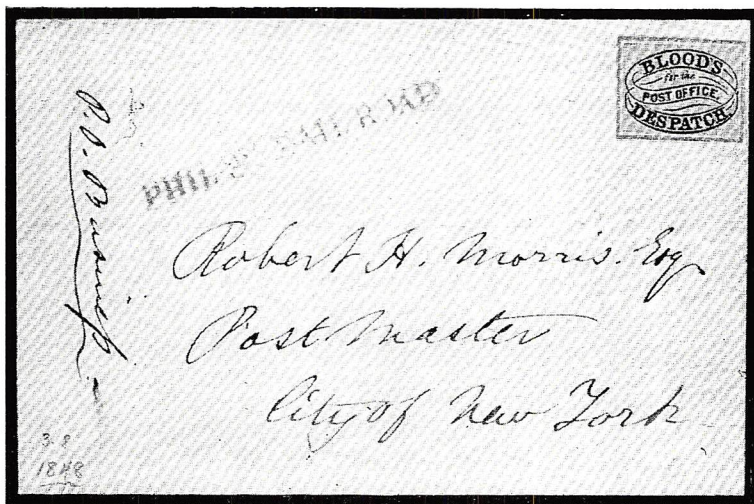 BLOOD'S
for the
POST OFFICE.
DESPATCH.
PHILA. RAIL ROAD
P. O. Business
Robert H. Morris. Esq
Post Master
City of New York
1848